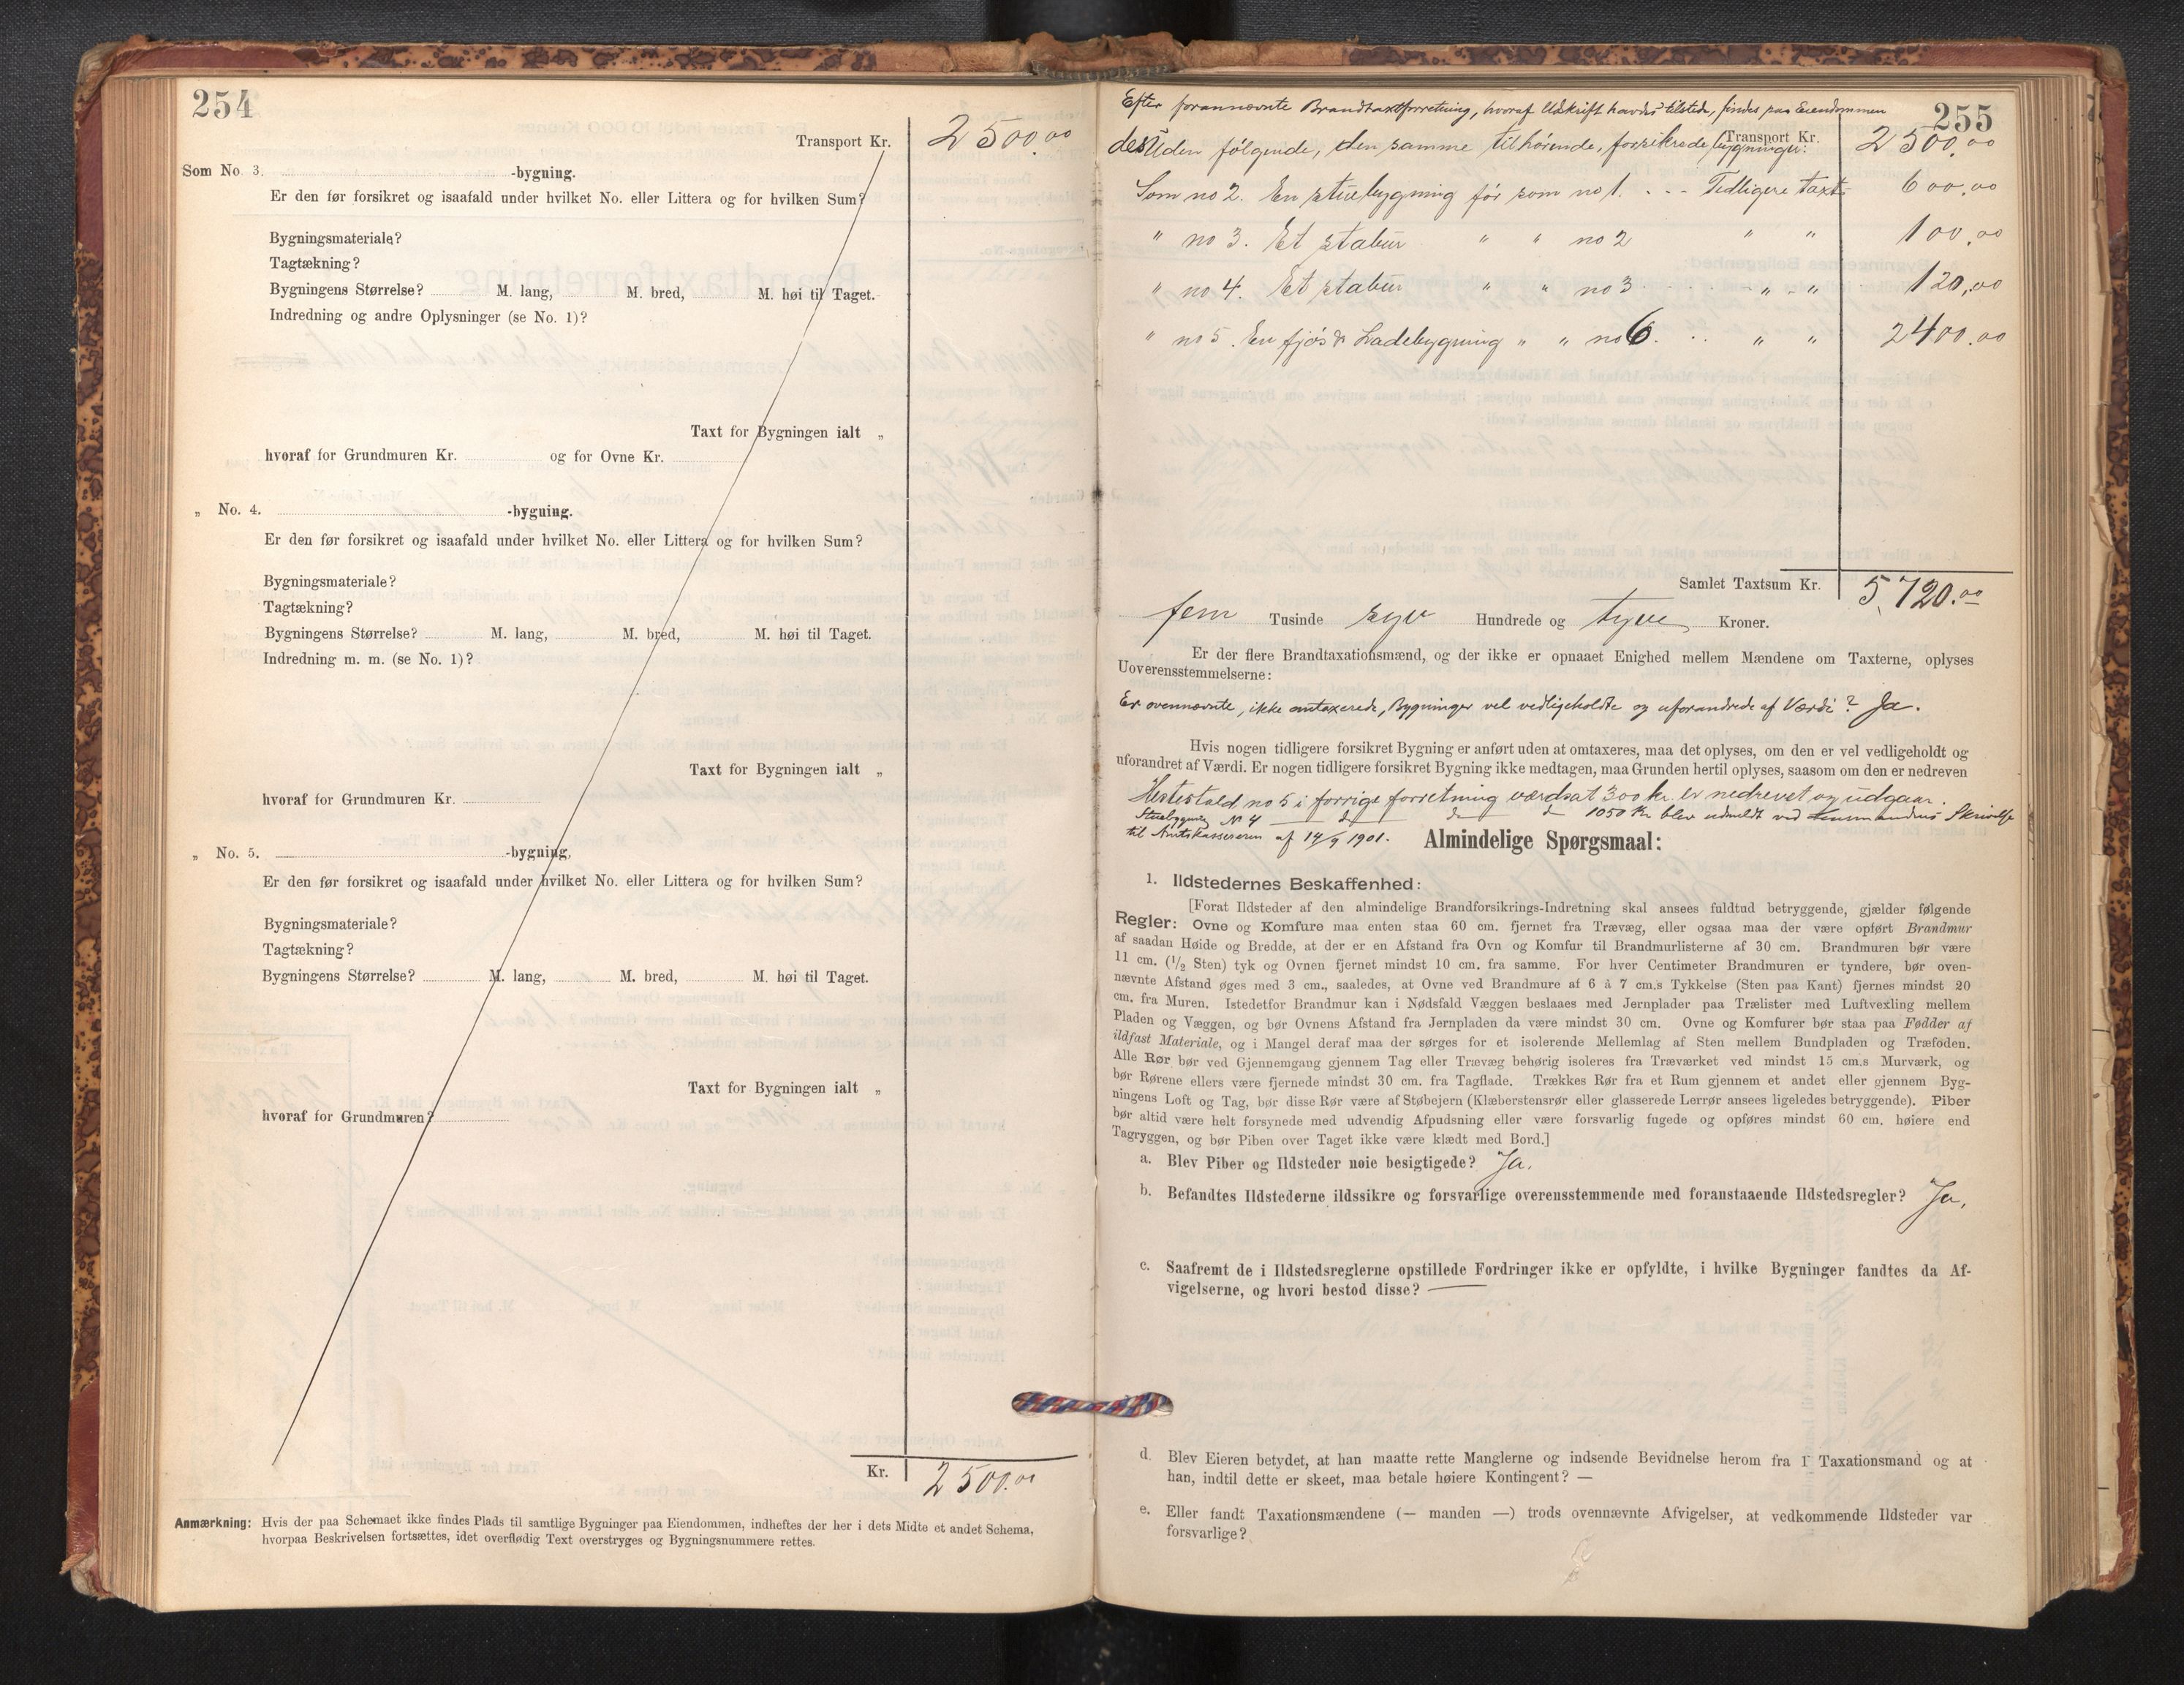 254
Transport Kr. 2500.00
Som No. 3. -bygning.
Er den før forsikret og isaafald under hvilket No. eller Littera og for hvilken Sum?
Bygningsmateriale?
Tagtækning?
Bygningens Størrelse? M. lang, M. bred, M. høi til Taget.
Indredning og andre Oplysninger (se No. 1)?
Taxt for Bygningen ialt „
hvoraf for Grundmuren Kr. og for Ovne Kr.
„ No. 4. -bygning.
Er den før forsikret og isaafald under hvilket No. eller Littera og for hvilken Sum?
Bygningsmateriale?
Tagtækning?
Bygningens Størrelse? M. lang, M. bred, M. høi til Taget.
Indredning m. m. (se No. 1)?
Taxt for Bygningen ialt „
hvoraf for Grundmuren Kr.
„ No. 5. -bygning,
Er den før forsikret og isaafald under hvilket No. eller Littera og for hvilken Sum?
Bygningsmateriale?
Tagtækning?
Bygningens Størrelse? M. lang, M. bred, M. høi til Taget.
Taxt for Bygningen ialt „
hvoraf for Grundmuren?
Kr. 2500.00
Anmærkning: Hvis der paa Schemaet ikke findes Plads til samtlige Bygninger paa Eiendommen, indheftes der her i dets Midte et andet Schema,
hvorpaa Beskrivelsen fortsættes, idet overflødig Text overstryges og Bygningsnummere rettes.
255
Efter forannævnte Brandtaxtforretning, hvoraf Udskrift havdes tilstede, findes paa Eiendommen
desuden følgende, den samme tilhørende, forsikrede bygninger: Transport Kr. 2500.00
Som no 2. En stuebygning før som no 1. . - - Tidligere taxt 600.00
" no 3. Et stabur " " no 2 " " 100.00
" no 4. Et stabur " " no 3 - - - " - " 120,00
" no 5. En fjøs & Ladebygning " " no 6. . . " " 2400.00
Samlet Taxtsum Kr. 5,720.00
fem Tusinde syv Hundrede og tyve Kroner.
Er der flere Brandtaxationsmænd, og der ikke er opnaaet Enighed mellem Mændene om Taxterne, oplyses
Uoverensstemmelserne:
Er ovennævnte, ikke omtaxerede, Bygninger vel vedligeholdte og uforandrede af Værdi? Ja.
Hvis nogen tidligere forsikret Bygning er anført uden at omtaxeres, maa det oplyses, om den er vel vedligeholdt og
uforandret af Værdi. Er nogen tidligere forsikret Bygning ikke medtagen, maa Grunden hertil oplyses, saasom om den er nedreven
Hestestald no 5 i forrige forretning værdsat 300 kr. er nedrevet og udgaar.
Stuebygning No 4 — d — d 1050 Kr blev udmeldt ved Skrivelse
til Amtskassereren af 14/9 1901.
Almindelige Spørgsmaal:
1. Ildstedernes Beskaffenhed:
[Forat Ildsteder af den almindelige Brandforsikrings-Indretning skal ansees fuldtud betryggende, gjælder følgende
Regler: Ovne og Komfure maa enten staa 60 cm. fjernet fra Trævæg, eller ogsaa maa der være opført Brandmur
af saadan Høide og Bredde, at der er en Afstand fra Ovn og Komfur til Brandmurlisterne af 30 cm. Brandmuren bør være
11 cm. (1/2 Sten) tyk og Ovnen fjernet mindst 10 cm. fra samme. For hver Centimeter Brandmuren er tyndere, bør oven-
nævnte Afstand øges med 3 cm., saaledes, at Ovne ved Brandmure af 6 à 7 cm.s Tykkelse (Sten paa Kant) fjernes mindst 20
cm. fra Muren. Istedetfor Brandmur kan i Nødsfald Væggen beslaaes med Jernplader paa Trælister med Luftvexling mellem
Pladen og Væggen, og bør Ovnens Afstand fra Jernpladen da være mindst 30 cm. Ovne og Komfurer bør staa paa Fødder af
ildfast Materiale, og i Mangel deraf maa der sørges for et isolerende Mellemlag af Sten mellem Bundpladen og Træfoden.
Alle Rør bør ved Gjennemgang gjennem Tag eller Trævæg behørig isoleres fra Træværket ved mindst 15 cm.s Murværk, og
bør Rørene ellers være fjernede mindst 30 cm. fra Tagflade. Trækkes Rør fra et Rum gjennem et andet eller gjennem Byg-
ningens Loft og Tag, bør disse Rør være af Støbejern (Klæberstensrør eller glasserede Lerrør ansees ligeledes betryggende). Piber
bør altid være helt forsynede med udvendig Afpudsning eller være forsvarlig fugede og opføres mindst 60 cm. høiere end
Tagryggen, og bør Piben over Taget ikke være klædt med Bord.]
a. Blev Piber og Ildsteder nøie besigtigede? Ja.
b. Befandtes Ildstederne ildssikre og forsvarlige overensstemmende med foranstaaende Ildstedsregler? Ja,
c. Saafremt de i Ildstedsreglerne opstillede Fordringer ikke er opfyldte, i hvilke Bygninger fandtes da Af-
vigelserne, og hvori bestod disse? —
d. Blev Eieren betydet, at han maatte rette Manglerne og indsende Bevidnelse herom fra 1 Taxationsmand og at
han, indtil dette er skeet, maa betale høiere Kontingent? —
e. Eller fandt Taxationsmændene (— manden —) trods ovennævnte Afvigelser, at vedkommende Ildsteder var
forsvarlige?